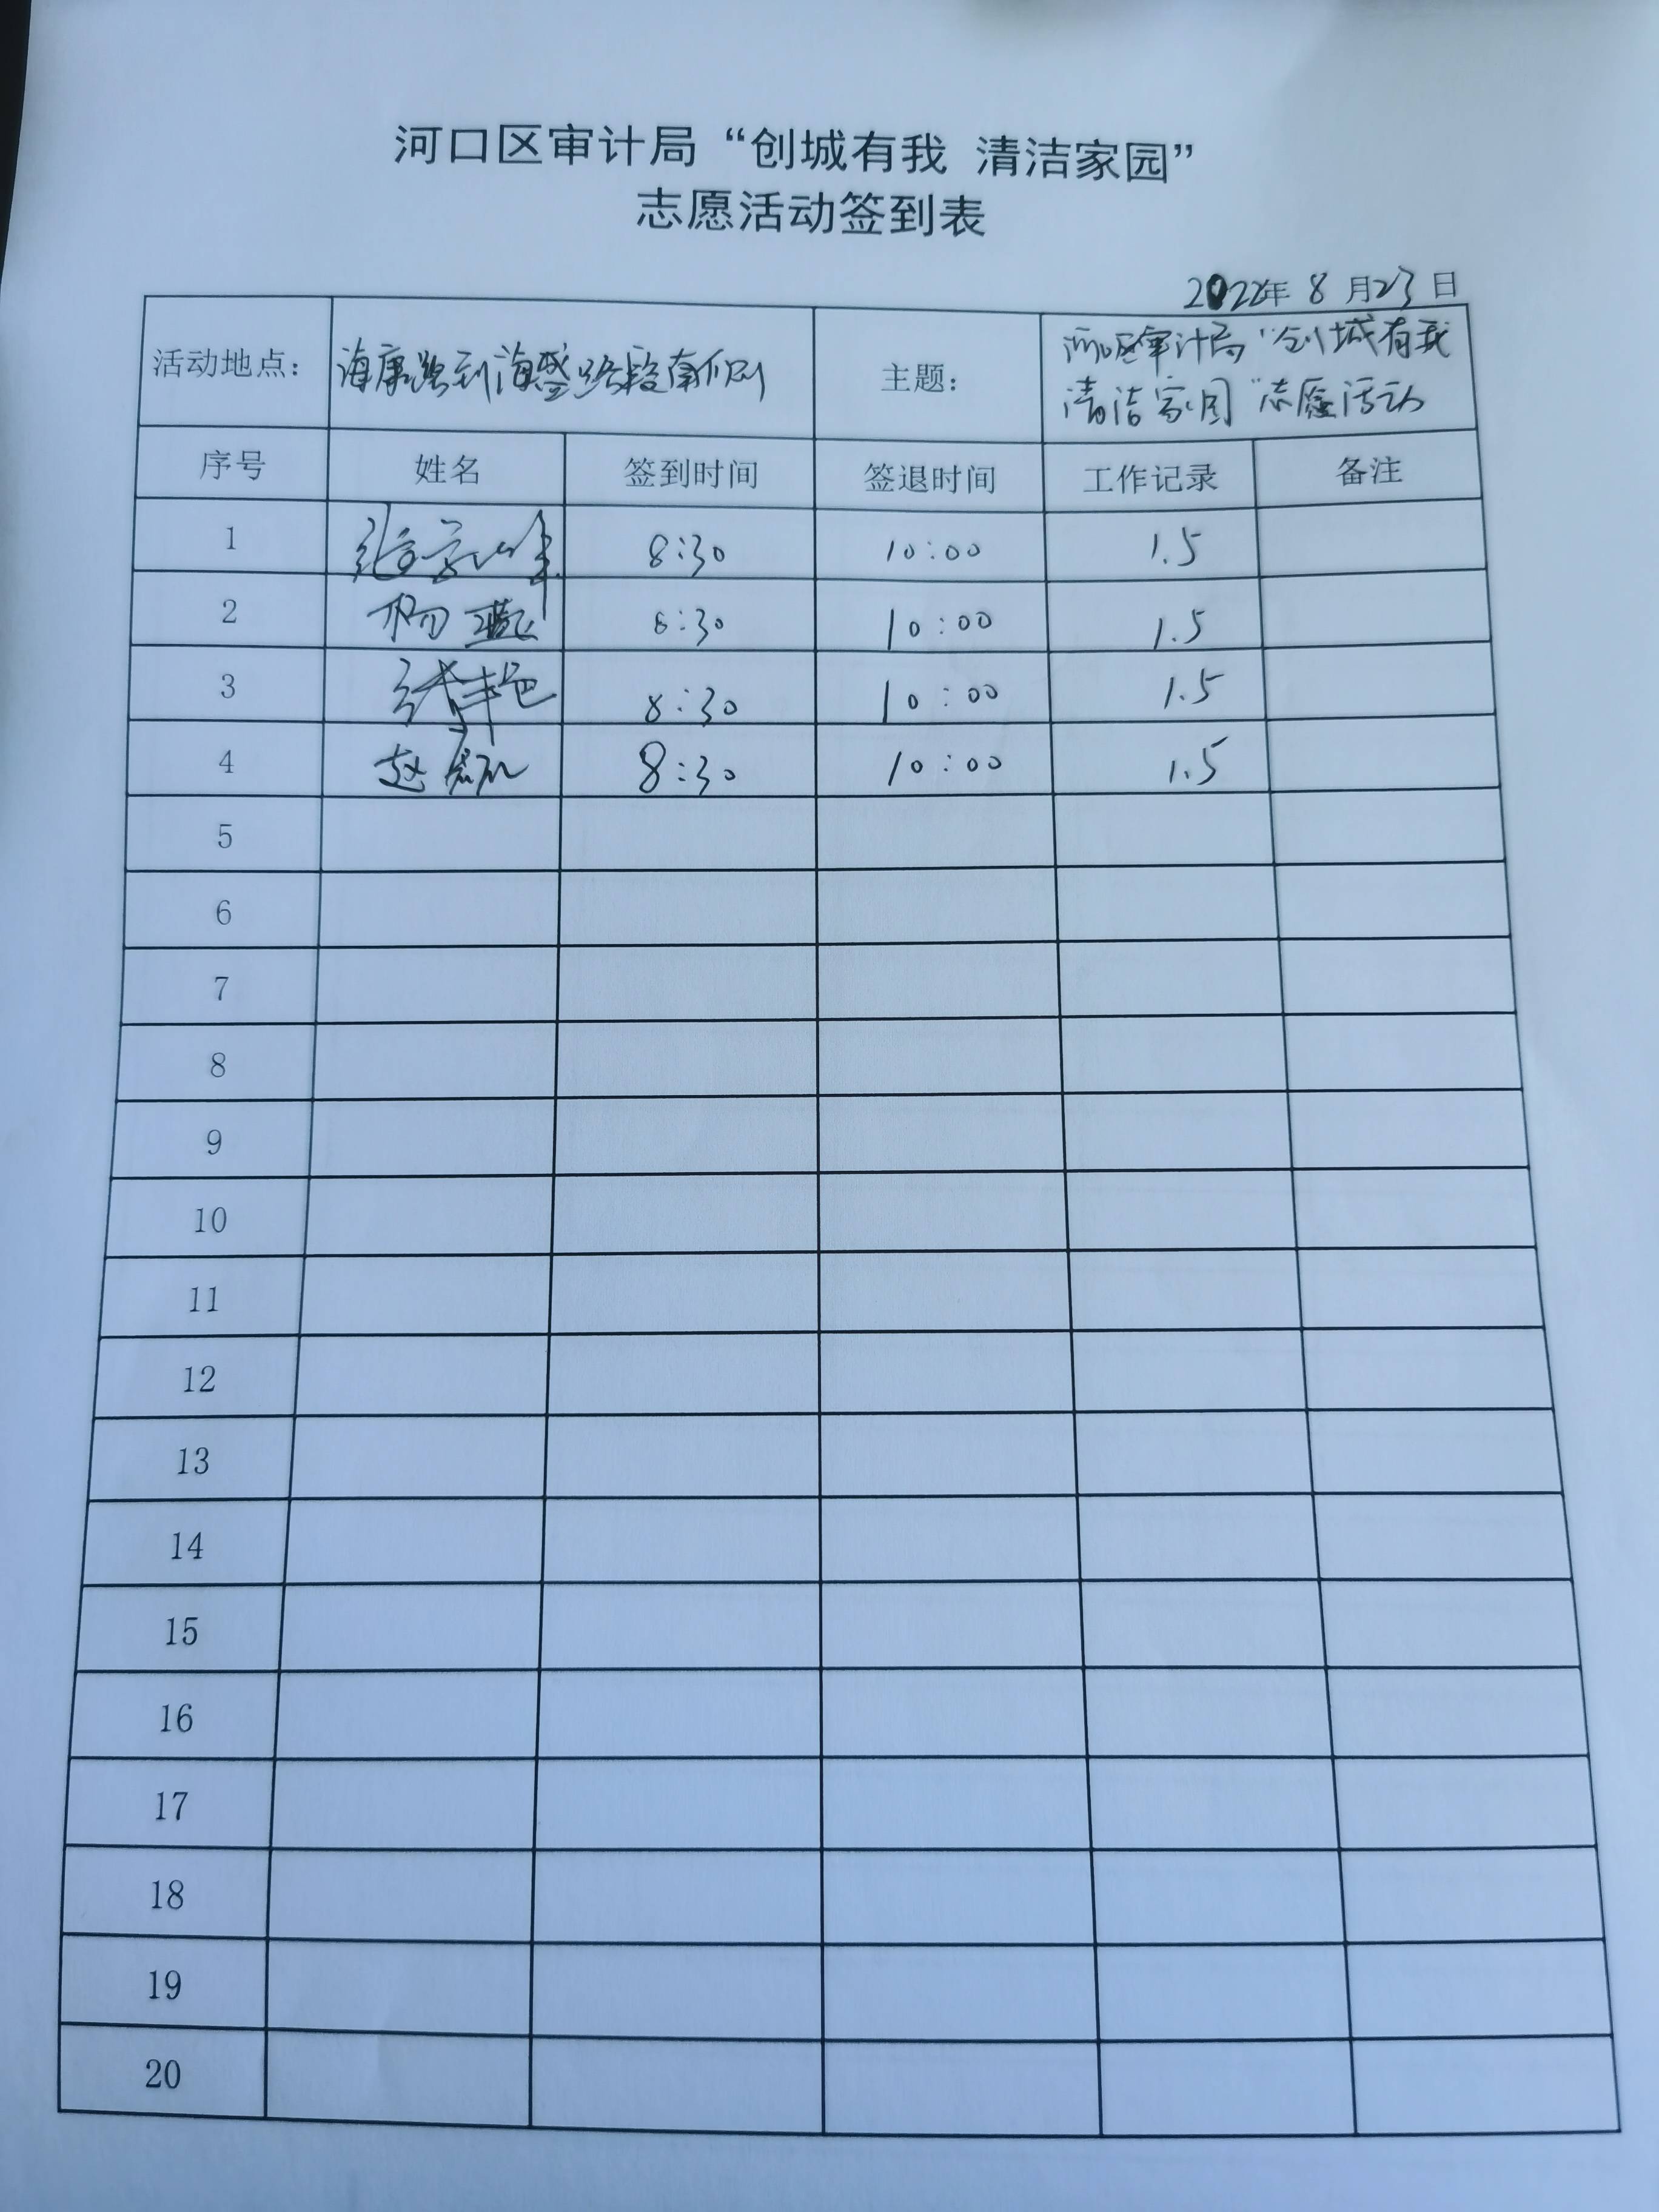 河口区审计局“创城有我 清洁家园”
志愿活动签到表
2022年 8 月23 日
活动地点： 海康路到海盛路段南侧 主题： 河口区审计局“创城有我
清洁家园”志愿活动
序号 姓名 签到时间 签退时间 工作记录 备注
1 8:30 10:00 1.5
2 杨 8:30 10:00 1.5
3 张 8:30 10:00 1.5
4 赵 8:30 10:00 1.5
5
6
7
8
9
10
11
12
13
14
15
16
17
18
19
20